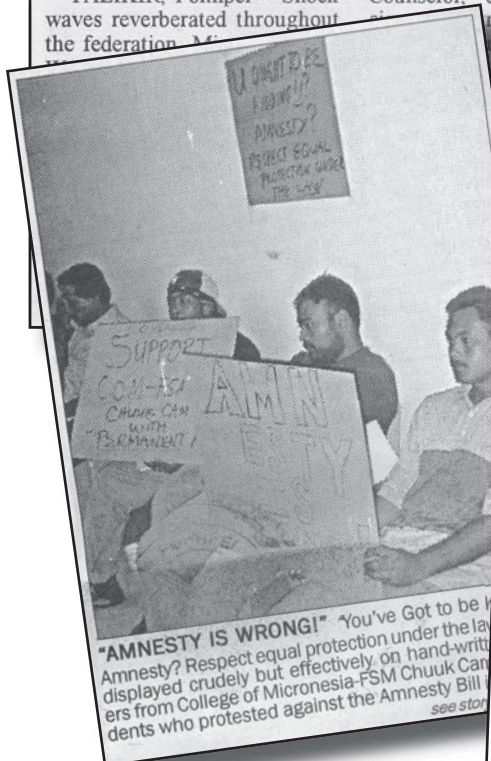 waves reverberated throughout
the federation.
U OUGHT TO BE
KIDDING!!?
AMNESTY?
RESPECT EQUAL
PROTECTION UNDER
THE LAW
SUPPORT
COM-FSM
CHUUK CAM
WITH
"PERMANENT!
AMN
ESTY
"AMNESTY IS WRONG!" "You've Got to be
Amnesty? Respect equal protection under the la
displayed crudely but effectively on hand-writt
ers from College of Micronesia-FSM Chuuk Cam
dents who protested against the Amnesty Bill
see stor